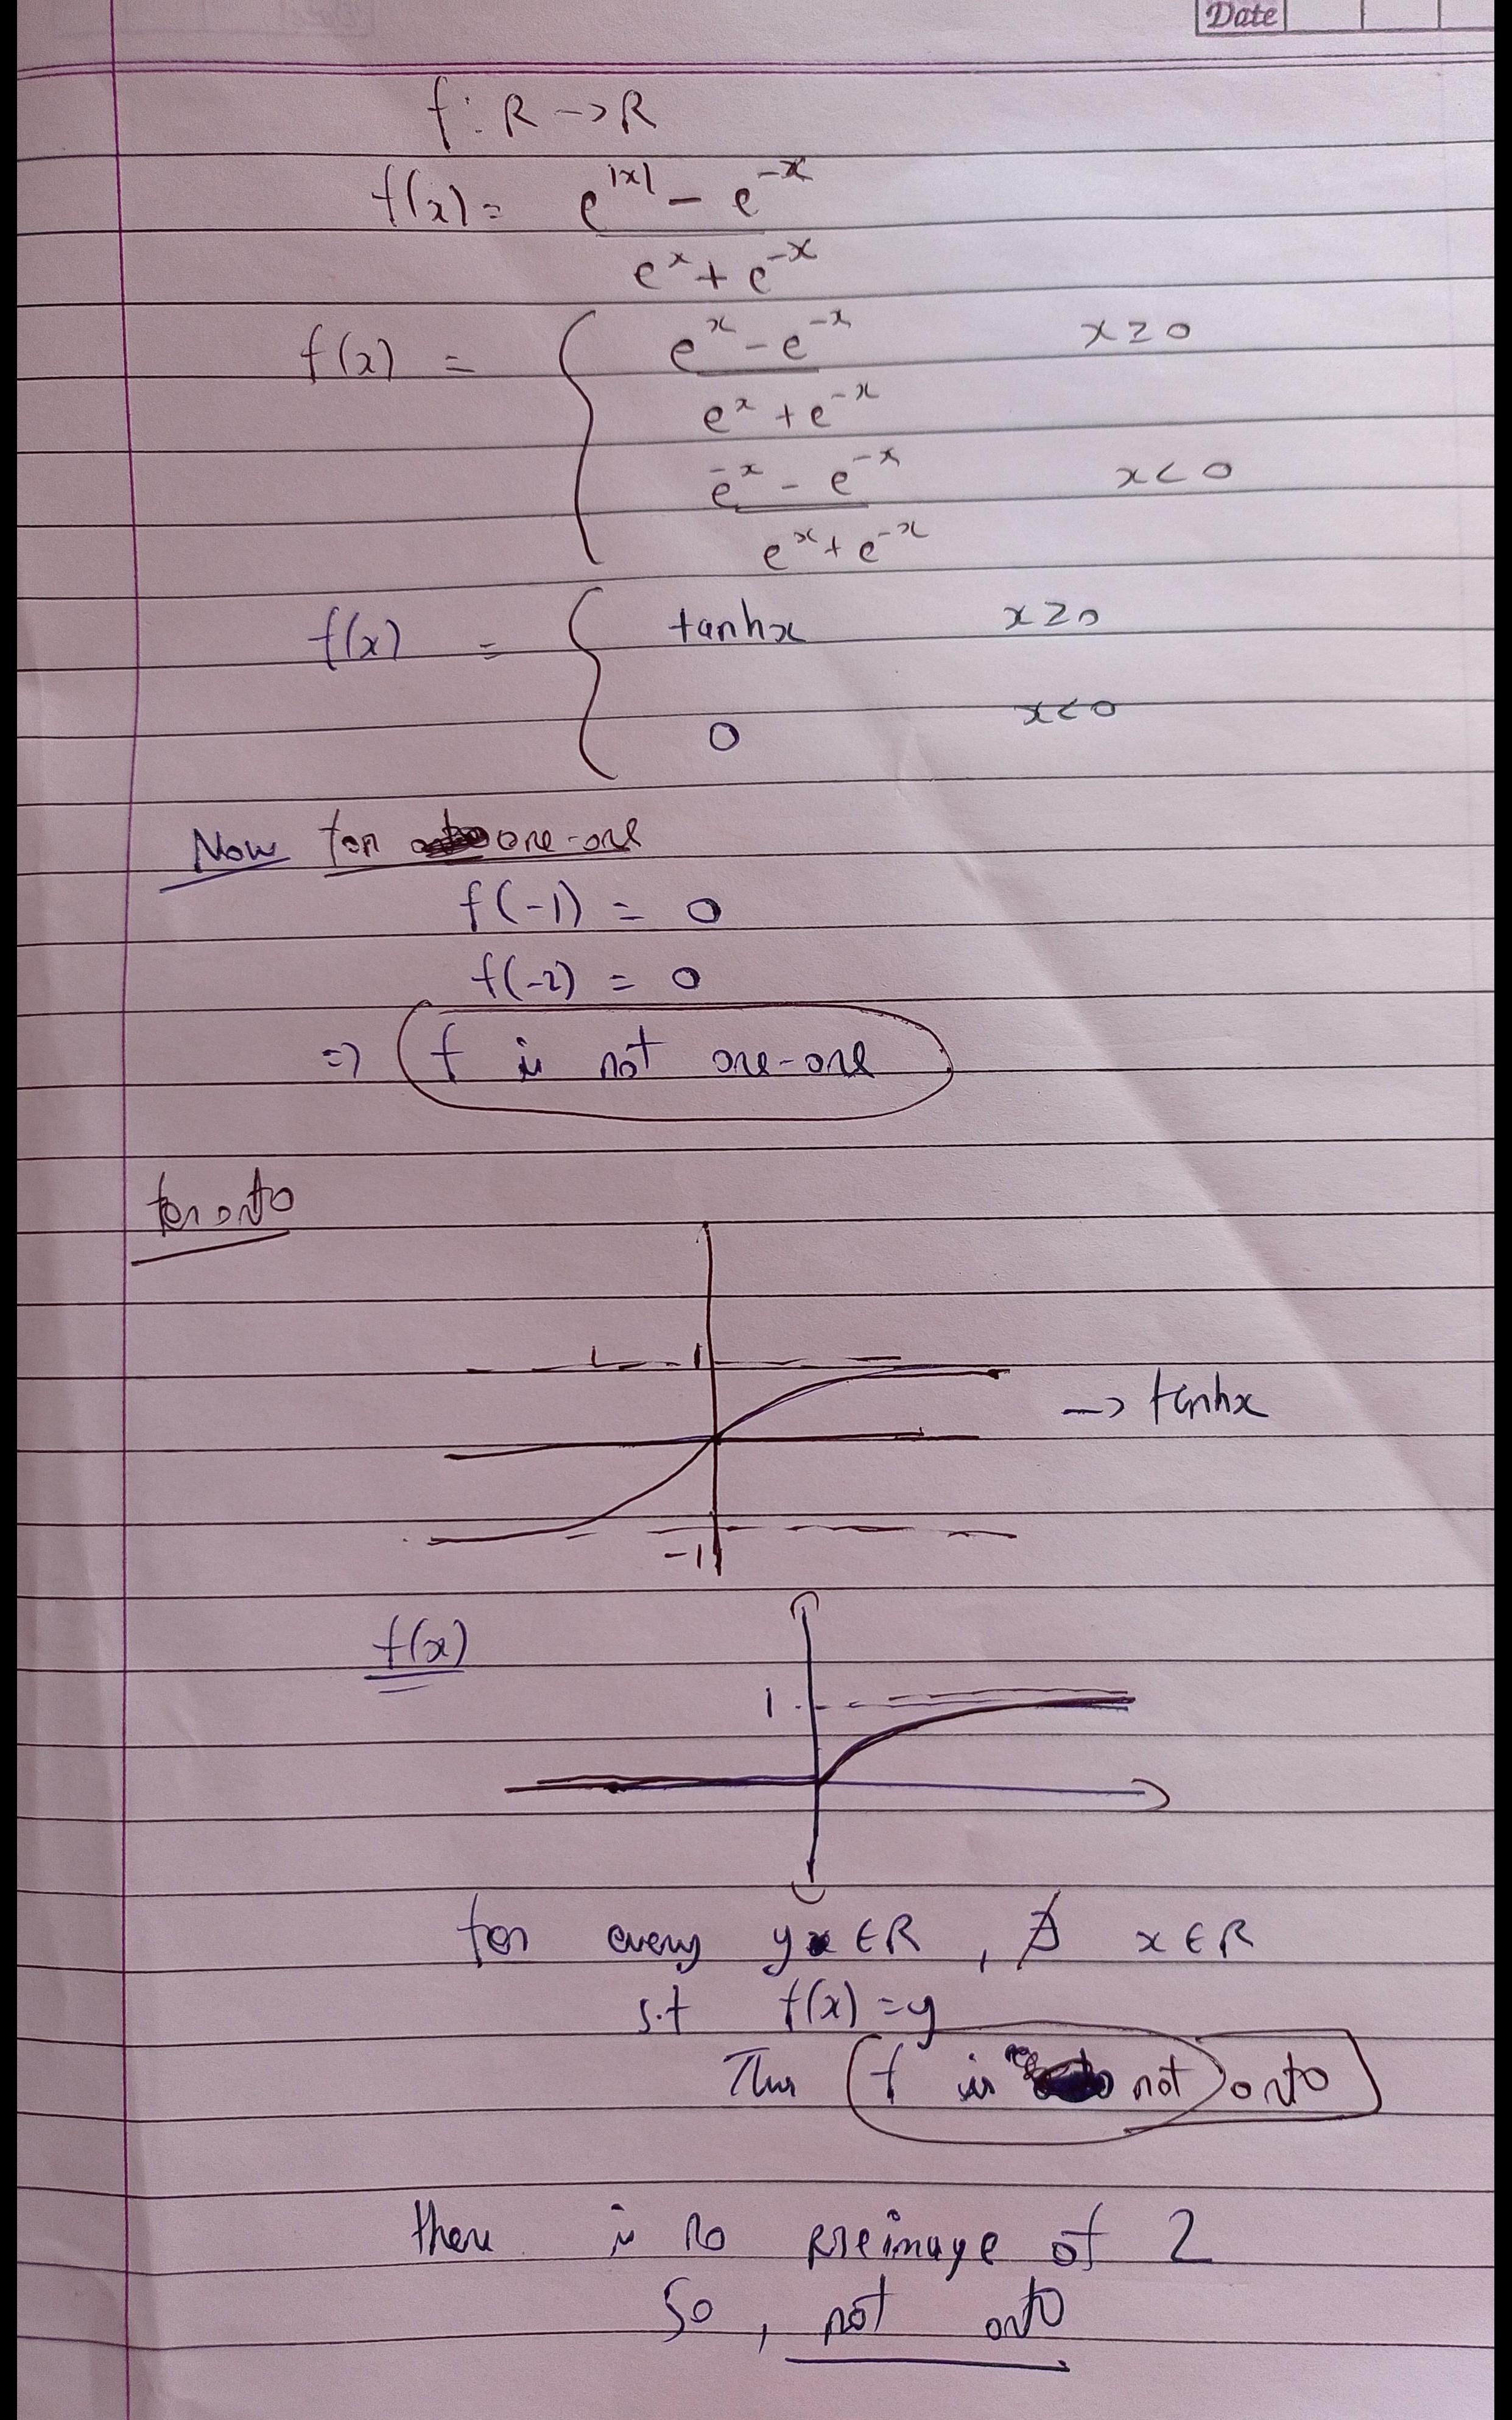 Date
f: R -> R
f(x) = e^|x| - e^-x
e^x + e^-x
f(x) = { e^x - e^-x x ≥ 0
e^x + e^-x
e^-x - e^-x x < 0
e^x + e^-x
f(x) = { tanhx x ≥ 0
0 x < 0
Now for one-one
f(-1) = 0
f(-2) = 0
=> f is not one-one
for onto
1
-> tanhx
-1
f(x)
1
for every y ∈ R, ∄ x ∈ R
s.t f(x) = y
Thus f is not onto
there is no preimage of 2
So, not onto